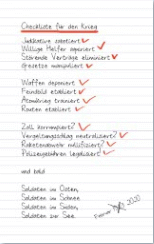 Checkliste für den Krieg
Judikative sabotiert ✓
Willige Helfer organisiert ✓
Störende Verträge eliminiert ✓
Gesetze manipuliert ✓
Waffen deponiert ✓
Feindbild etabliert ✓
Atmung trainiert ✓
Routen etabliert ✓
Zoll korrumpiert?
Vergeltungsschlag neutralisiert?
Raketenabwehr
Polizeigewalten legalisiert
und bald
Soldaten im Osten,
Soldaten im Schnee
Soldaten im Süden,
Soldaten zur See
2020